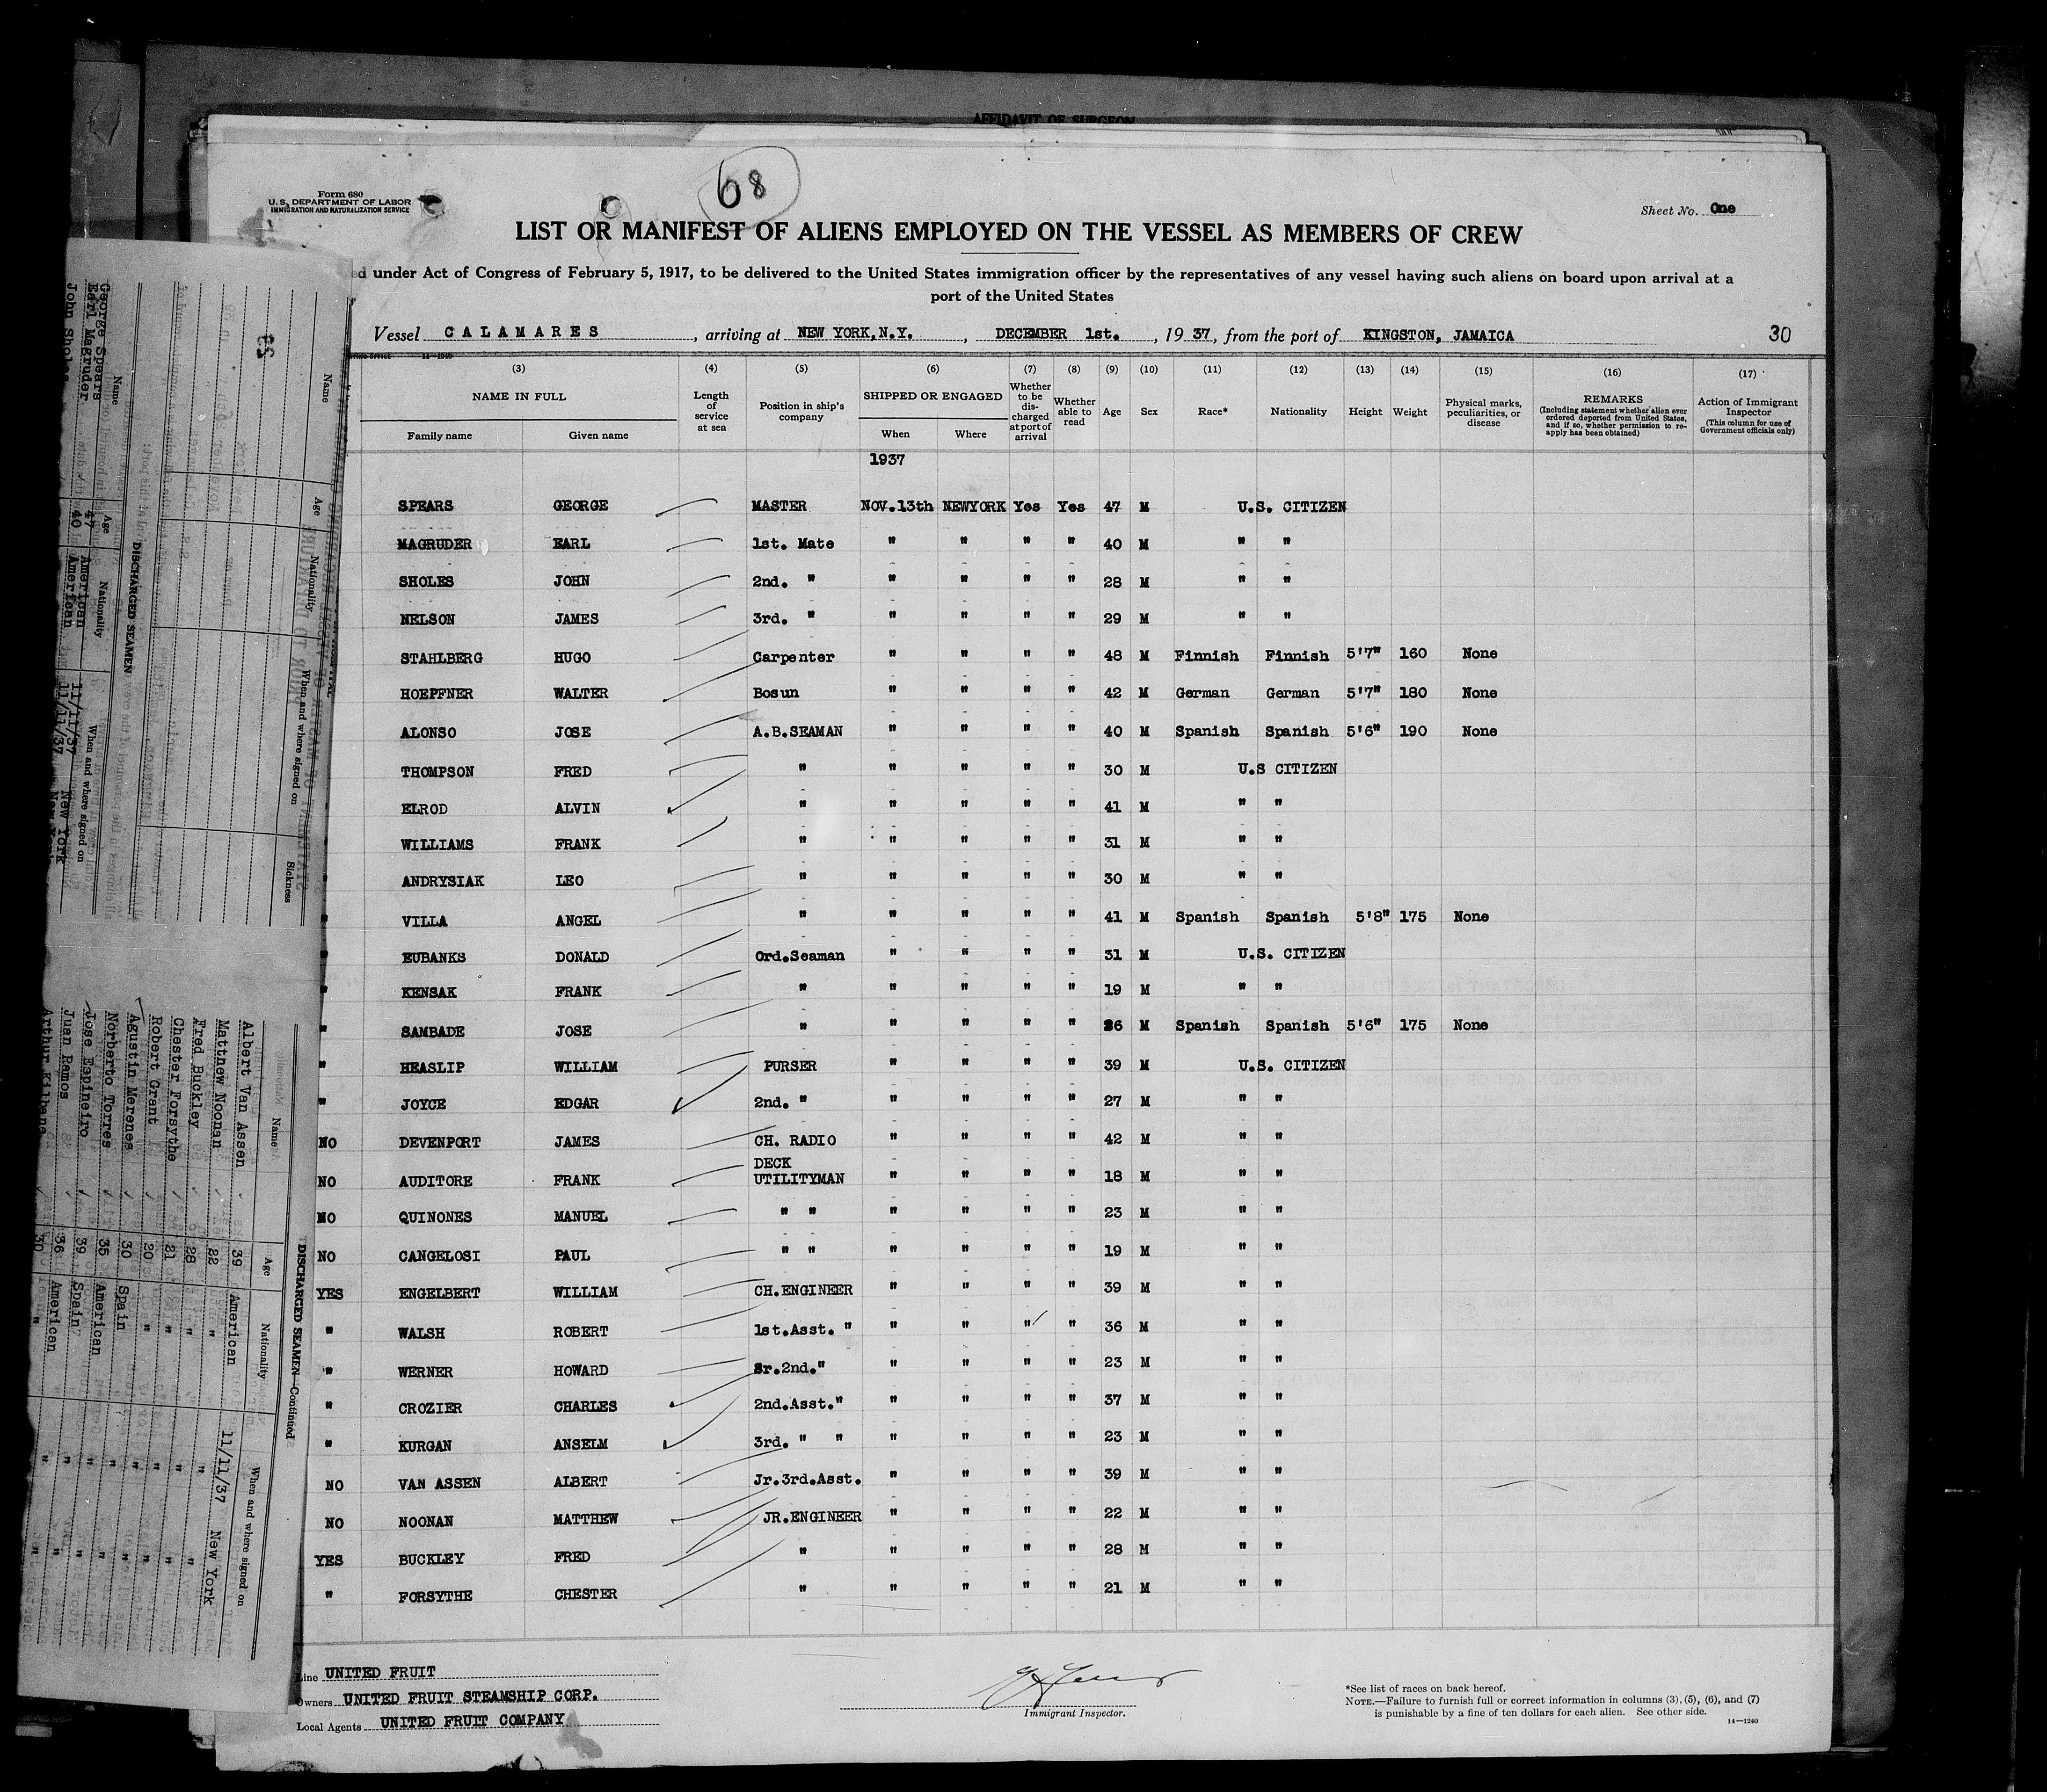 AFFIDAVIT OF SURGEON
68
Form 680
U.S. DEPARTMENT OF LABOR
IMMIGRATION AND NATURALIZATION SERVICE
Sheet No. One
LIST OR MANIFEST OF ALIENS EMPLOYED ON THE VESSEL AS MEMBERS OF CREW
under Act of Congress of February 5, 1917, to be delivered to the United States immigration officer by the representatives of any vessel having such aliens on board upon arrival at a
port of the United States
Vessel CALAMARES, arriving at NEW YORK, N.Y., DECEMBER 1st., 1937, from the port of KINGSTON, JAMAICA 30
(3) (4) (5) (6) (7) (8) (9) (10) (11) (12) (13) (14) (15) (16) (17)
NAME IN FULL
Family name Given name
Length of service at sea
Position in ship's company
SHIPPED OR ENGAGED
When Where
Whether to be discharged at port of arrival
Whether able to read
Age Sex Race* Nationality Height Weight
Physical marks, peculiarities, or disease
REMARKS
(Including statement whether alien ever ordered deported from United States, and if so, whether permission to reapply has been obtained)
Action of Immigrant Inspector
(This column for use of Government officials only)
1937
SPEARS GEORGE MASTER NOV.13th NEWYORK Yes Yes 47 M U.S. CITIZEN
MAGRUDER EARL 1st. Mate " " " " 40 M " "
SHOLES JOHN 2nd. " " " " " 28 M " "
NELSON JAMES 3rd. " " " " " 29 M " "
STAHLBERG HUGO Carpenter " " " " 48 M Finnish Finnish 5'7" 160 None
HOEPFNER WALTER Bosun " " " " 42 M German German 5'7" 180 None
ALONSO JOSE A.B.SEAMAN " " " " 40 M Spanish Spanish 5'6" 190 None
THOMPSON FRED " " " " " 30 M U.S CITIZEN
ELROD ALVIN " " " " " 41 M " "
WILLIAMS FRANK " " " " " 31 M " "
ANDRYSIAK LEO " " " " " 30 M " "
" VILLA ANGEL " " " " " 41 M Spanish Spanish 5'8" 175 None
" EUBANKS DONALD Ord.Seaman " " " " 31 M U.S. CITIZEN
" KENSAK FRANK " " " " " 19 M " "
" SAMBADE JOSE " " " " " 36 M Spanish Spanish 5'6" 175 None
" HEASLIP WILLIAM PURSER " " " " 39 M U.S. CITIZEN
" JOYCE EDGAR 2nd. " " " " " 27 M " "
NO DEVENPORT JAMES CH. RADIO " " " " 42 M " "
NO AUDITORE FRANK DECK UTILITYMAN " " " " 18 M " "
NO QUINONES MANUEL " " " " " " 23 M " "
NO CANGELOSI PAUL " " " " " " 19 M " "
YES ENGELBERT WILLIAM CH.ENGINEER " " " " 39 M " "
" WALSH ROBERT 1st.Asst. " " " " " 36 M " "
" WERNER HOWARD Sr.2nd." " " " " 23 M " "
" CROZIER CHARLES 2nd.Asst." " " " " 37 M " "
" KURGAN ANSELM 3rd. " " " " " " 23 M " "
NO VAN ASSEN ALBERT Jr.3rd.Asst. " " " " 39 M " "
NO NOONAN MATTHEW JR.ENGINEER " " " " 22 M " "
YES BUCKLEY FRED " " " " " 28 M " "
" FORSYTHE CHESTER " " " " " 21 M " "
Line UNITED FRUIT
Owners UNITED FRUIT STEAMSHIP CORP.
Local Agents UNITED FRUIT COMPANY
Immigrant Inspector.
*See list of races on back hereof.
NOTE.—Failure to furnish full or correct information in columns (3), (5), (6), and (7)
is punishable by a fine of ten dollars for each alien. See other side.
14—1240
Name Age Nationality When and where signed on Sickness
DISCHARGED SEAMEN
Name Age Nationality When and where signed on
George Spears 47 American 11/11/37 New York
Earl Magruder 40 American 11/11/37
John Sholes
DISCHARGED SEAMEN—Continued
Name Age Nationality When and where signed on
Albert Van Assen 39 American 11/11/37 New York
Matthew Noonan 22 " " "
Fred Buckley 28 " " "
Chester Forsythe 21 " " "
Robert Grant 20 " " "
Agustin Merenes 30 Spain " "
Norberto Torres 35 American " "
Jose Espineiro 39 Spain " "
Juan Ramos 36 American " "
Arthur Kilbane 30 " " "